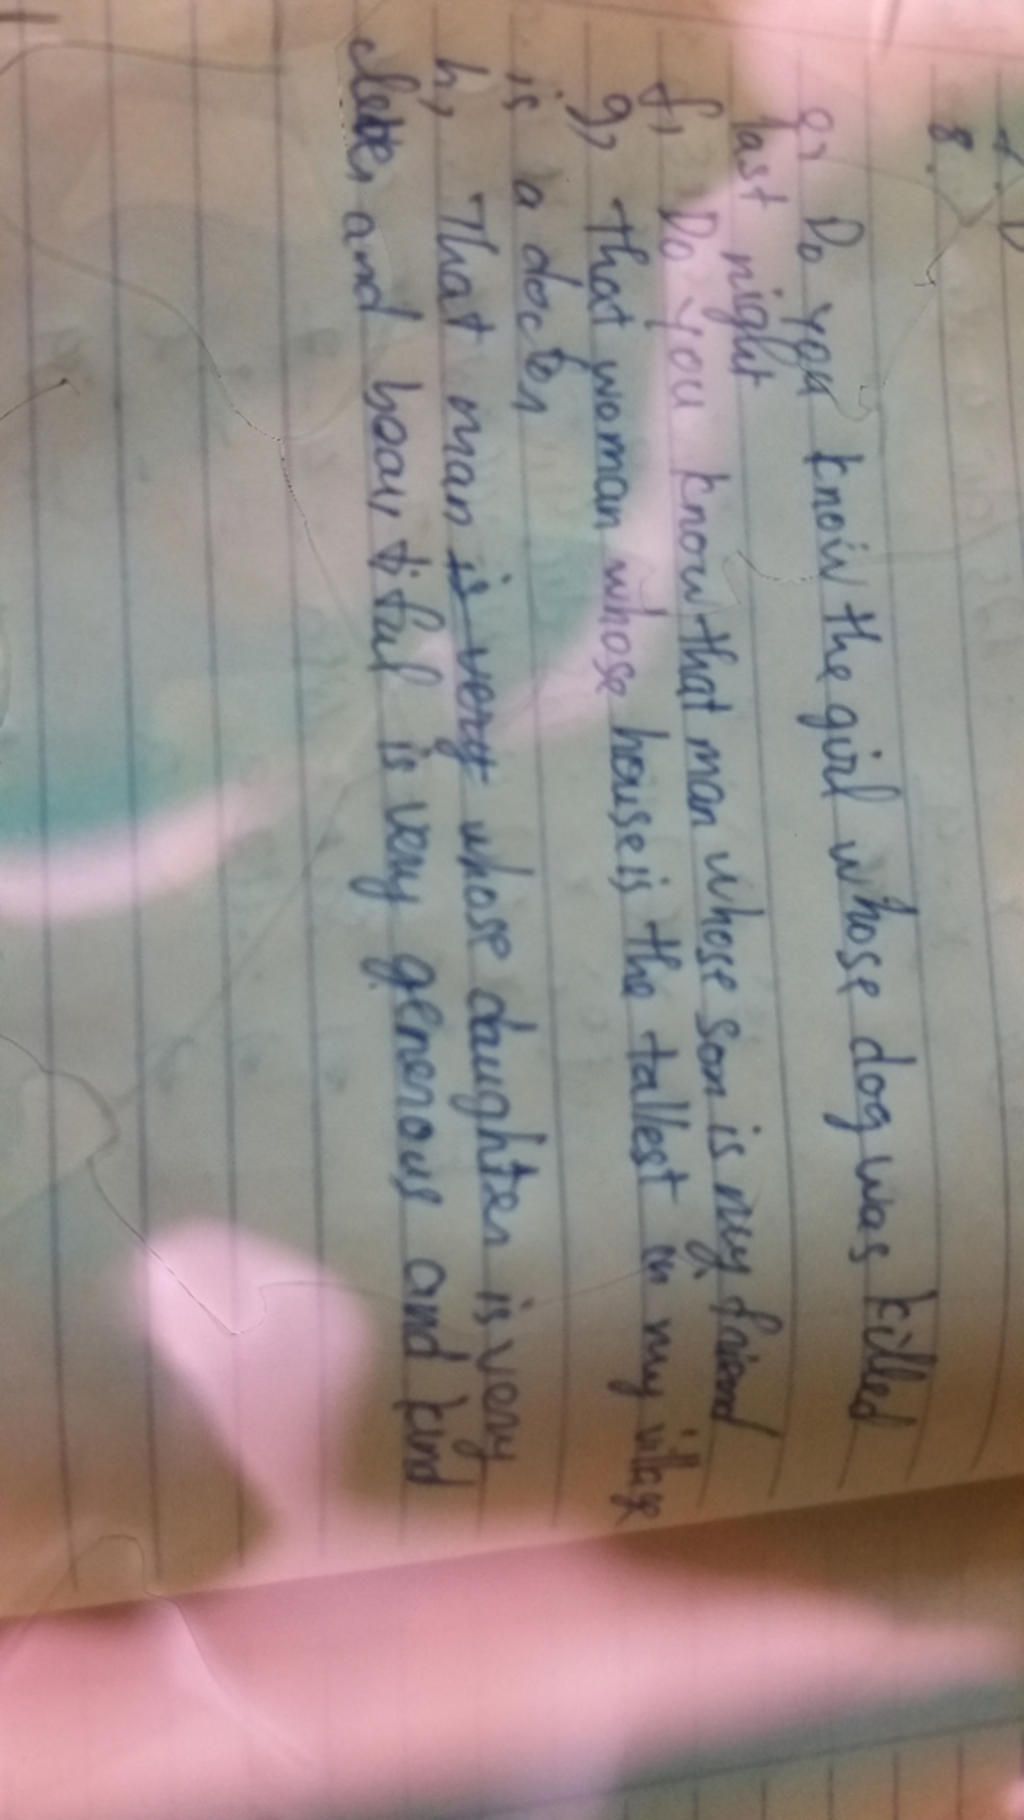 8.
e, Do you know the girl whose dog was killed
last night
f, Do you know that man whose son is my friend
g, that woman whose house is the tallest in my village
is a docter
h, That man is very whose daughter is very
clever and beautiful is very generous and kind